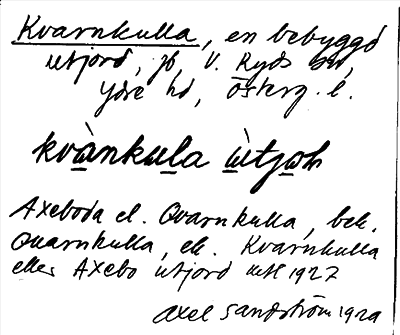 Kvarnkulla, en bebyggd
utjord, jb, V. Ryds sn,
Ydre hd, Österg. l.
kvànkula ùtjoh
Axeboda el. Qvarnkulla, bek.
Qvarnkulla, ek. Kvarnkulla
eller Axebo utjord 1927
Axel Sandström 192